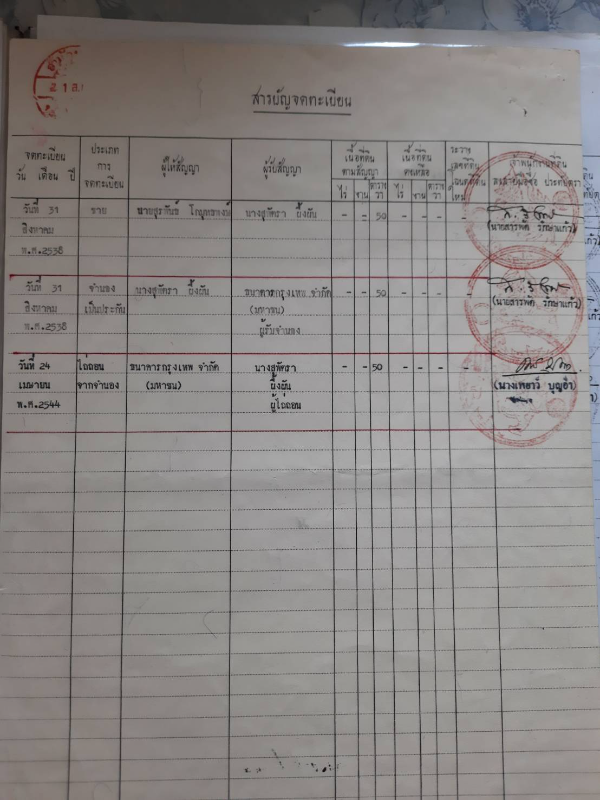 สารบัญจดทะเบียน
จดทะเบียน
วัน เดือน ปี
ประเภท
การ
จดทะเบียน
ผู้ให้สัญญา
ผู้รับสัญญา
เนื้อที่ดิน
ตามสัญญา
ไร่ งาน ตาราง
วา
เนื้อที่ดิน
คงเหลือ
ไร่ งาน ตาราง
วา
ระวาง
เลขที่ดิน
โฉนดที่ดิน
ใหม่
เจ้าพนักงานที่ดิน
ลงลายมือชื่อ ประทับตรา
วันที่ 31 ขาย นายสุรพันธ์ นางสุพัตรา ยิ้งผัน - - 50 - - - -
สิงหาคม
พ.ศ.2538
(นายสารพัด รักษาแก้ว)
วันที่ 31 จำนอง นางสุพัตรา ยิ้งผัน ธนาคารกรุงเทพ จำกัด - - 50 - - - -
สิงหาคม เป็นประกัน (มหาชน)
พ.ศ.2538 ผู้รับจำนอง
(นายสารพัด รักษาแก้ว)
วันที่ 24 ไถ่ถอน ธนาคารกรุงเทพ จำกัด นางสุพัตรา - - 50 - - - -
เมษายน จากจำนอง (มหาชน) ยิ้งผัน
พ.ศ.2544 ผู้ไถ่ถอน
(นางเพยาว์ บุญอ่ำ)